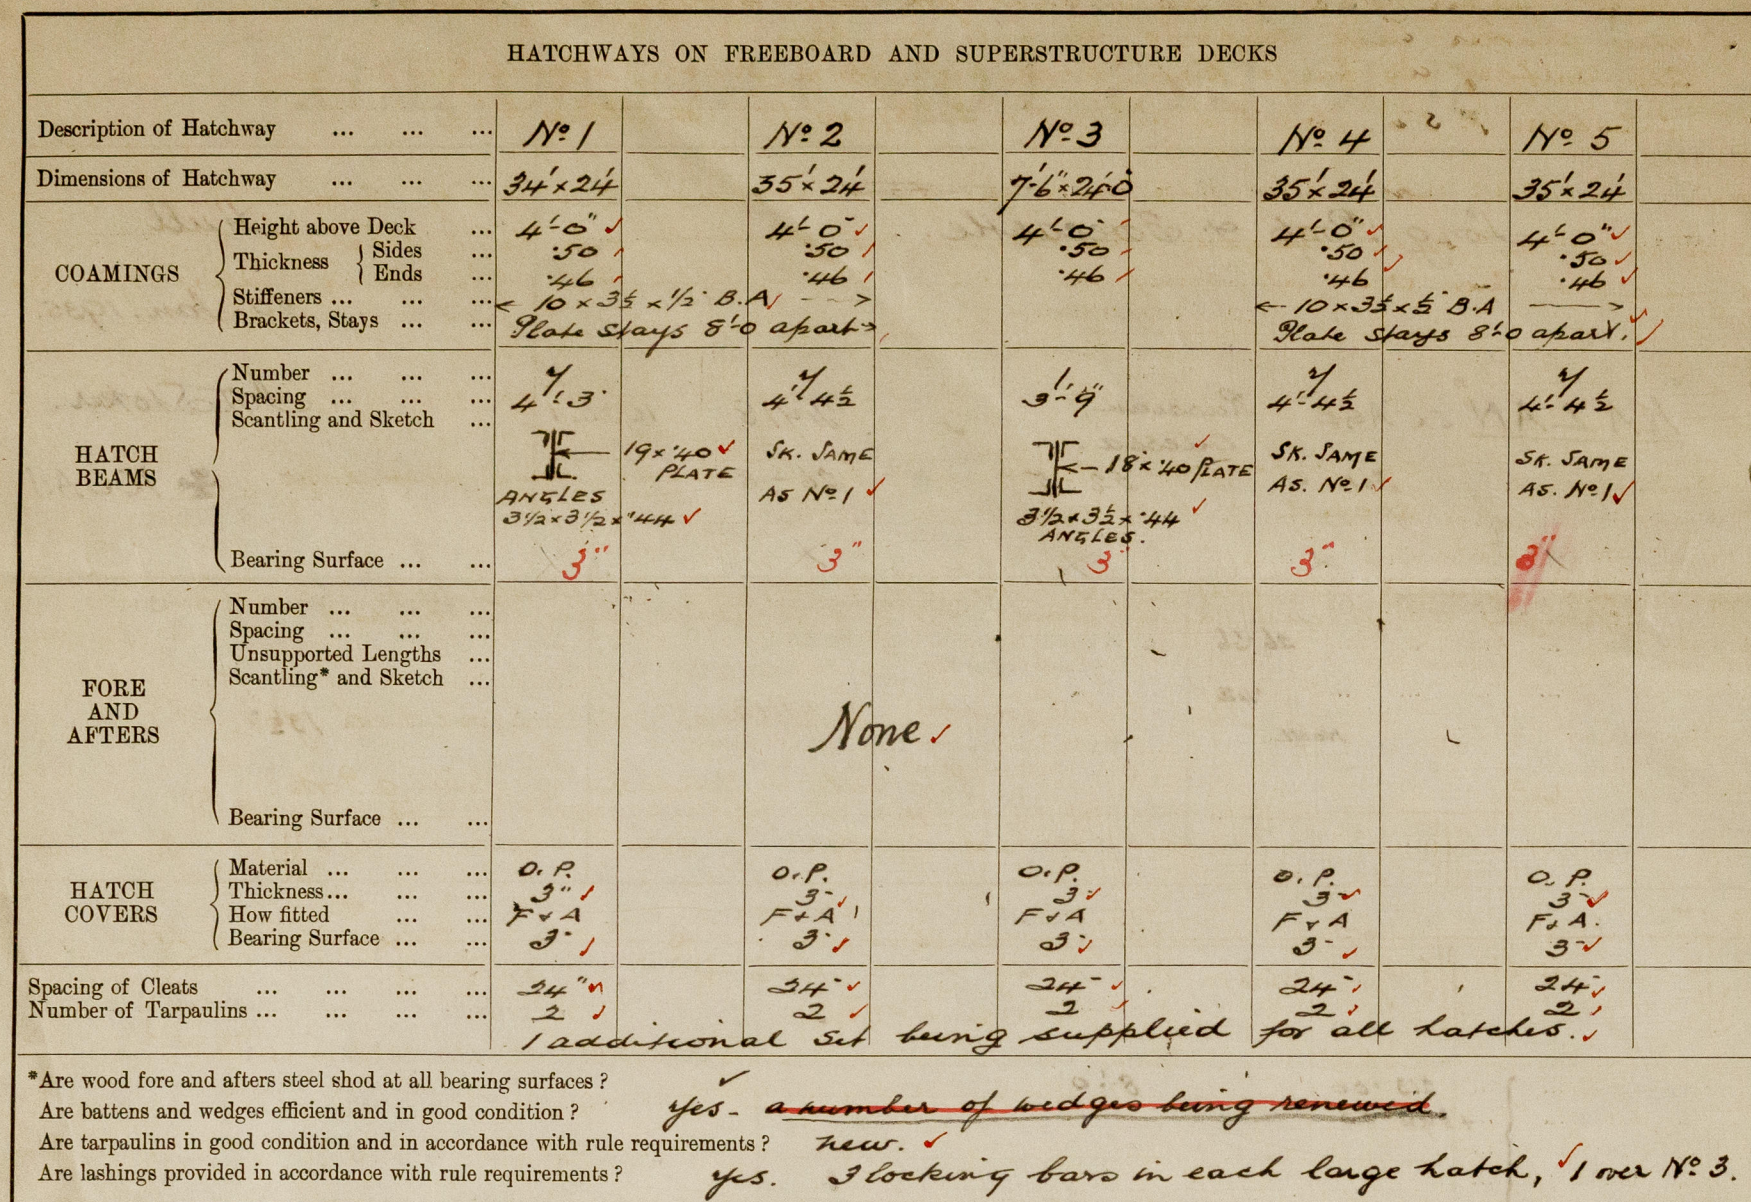 HATCHWAYS ON FREEBOARD AND SUPERSTRUCTURE DECKS
Description of Hatchway ... ... ... No 1 No 2 No 3 No 4 No 5
Dimensions of Hatchway ... ... ... 34' x 24' 35' x 24' 7'-6" x 24'-0 35' x 24' 35' x 24'
COAMINGS
Height above Deck ... 4'-0" 4'-0" 4'-0" 4'-0" 4'-0"
Thickness Sides ... .50 .50 .50 .50 .50
Ends ... .46 .46 .46 .46 .46
Stiffeners ... ... ... ← 10 x 3½ x ½" B.A → ← 10 x 3½ x ½ B.A →
Brackets, Stays ... ... Plate stays 8'-0 apart → Plate stays 8'-0 apart.
HATCH BEAMS
Number ... ... ... 7 7 1 7 7
Spacing ... ... ... 4'-3" 4'-4½ 3'-9" 4'-4½ 4'-4½
Scantling and Sketch ...
← 19 x .40 PLATE SK. SAME AS No 1 ← 18 x .40 PLATE SK. SAME AS. No 1 SK. SAME AS. No 1
ANGLES 3 1/2 x 3 1/2 x .44 3 1/2 x 3½ x .44 ANGLES.
Bearing Surface ... ... 3" 3" 3 3" 3"
FORE AND AFTERS
Number ... ... ...
Spacing ... ... ...
Unsupported Lengths ...
Scantling* and Sketch ...
None
Bearing Surface ... ...
HATCH COVERS
Material ... ... ... O.P. O.P. O.P. O.P. O.P.
Thickness... ... ... 3" 3" 3" 3" 3"
How fitted ... ... F & A F & A F & A F & A F & A.
Bearing Surface ... ... 3" 3" 3" 3" 3"
Spacing of Cleats ... ... ... ... 24" 24" 24" 24" 24"
Number of Tarpaulins ... ... ... ... 2 2 2 2 2
1 additional set being supplied for all hatches.
*Are wood fore and afters steel shod at all bearing surfaces ? ✓
Are battens and wedges efficient and in good condition ? Yes - a number of wedges being renewed.
Are tarpaulins in good condition and in accordance with rule requirements ? new.
Are lashings provided in accordance with rule requirements ? yes. 3 locking bars in each large hatch, 1 over No 3.